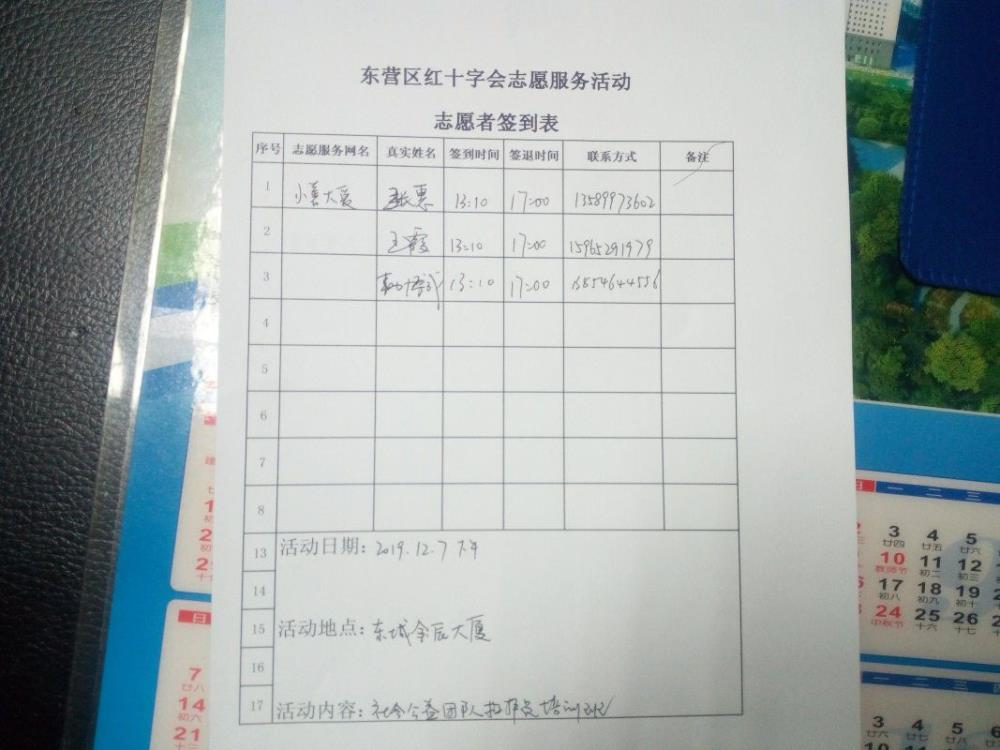 东营区红十字会志愿服务活动
志愿者签到表
序号 志愿服务网名 真实姓名 签到时间 签退时间 联系方式 备注
1 小善大爱 张惠 13:10 17:00 13589973602
2 王霞 13:10 17:00 15965291979
3 13:10 17:00 13854644556
4
5
6
7
8
13 活动日期: 2019.12.7 下午
14
15 活动地点: 东城金辰大厦
16
17 活动内容: 社会公益团队指挥员培训班
日 一 二 三
3 4 5
廿四 廿五 廿六
10 11 12
教师节 初二 初三
17 18 19
初八 初九 初十
24 25 26
中秋节 十六 十七
日
7
廿八
14
初六
21
十三
3 4 5